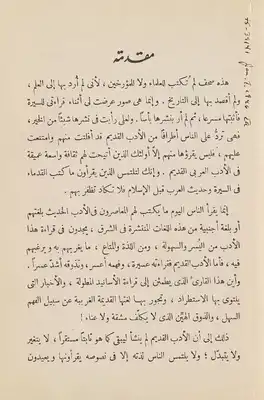 مقدمة
هذه صحف لم تُكتب للعلماء ولا للمؤرخين، لأنى لم أُرد بها إلى العلم،
ولم أقصد بها إلى التاريخ. وإنما هى صور عرضت لى أثناء قراءتى للسيرة
فأثبتُّها مسرعا، ثم لم أر بنشرها بأسا. ولعلى رأيت فى نشرها شيئا من الخير،
فهى تردُّ على الناس أطرافًا من الأدب القديم قد أفلتت منهم وامتنعت
عليهم، فليس يقرؤها منهم إلا أولئك الذين أتيحت لهم ثقافة واسعة عميقة
فى الأدب العربى القديم. وإنك لتلتمس الذين يقرأون ما كتب القدماء
فى السيرة وحديث العرب قبل الإسلام فلا تكاد تظفر بهم.
إنما يقرأ الناس اليوم ما يكتب لهم المعاصرون فى الأدب الحديث بلغتهم
أو بلغة أجنبية من هذه اللغات المنتشرة فى الشرق، يجدون فى قراءة هذا
الأدب من اليُسر والسهولة، ومن اللذة والمتاع، ما يغريهم به و يرغبهم
فيه، فأما الأدب القديم فقراءته عسيرة، وفهمه أعسر، وتذوقه أشدُّ عسرا.
وأين هذا القارئ الذى يطمئن إلى قراءة الأسانيد المطوَّلة، والأخبار التى
يلتوى بها الاستطراد، وتجور بها لغتها القديمة الغريبة عن سبيل الفهم
السهل، والذوق الهيِّن الذى لا يكلِّف مشقة ولا عناء!
ذلك إلى أن الأدب القديم لم ينشأ ليبقى كما هو ثابتا مستقرا، لا يتغير
ولا يتبدَّل؛ ولا يلتمس الناس لذته إلا فى نصوصه يقرأونها و يعيدون